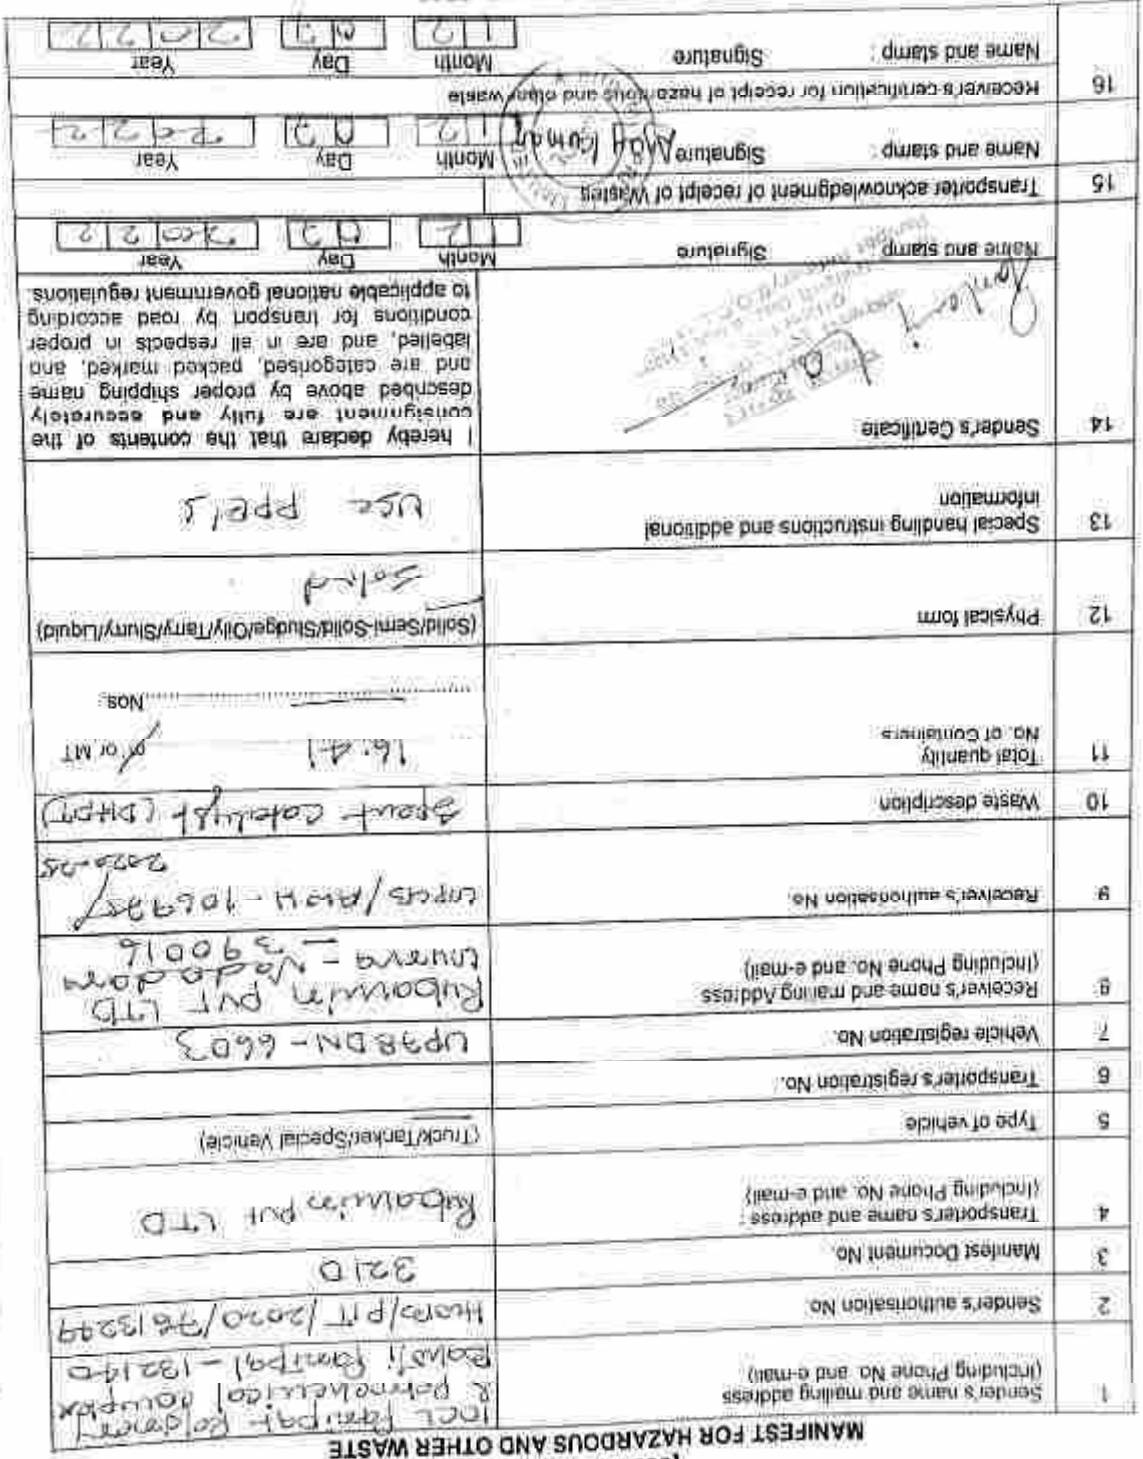 MANIFEST FOR HAZARDOUS AND OTHER WASTE
1 Sender's name and mailing address
(Including Phone No. and e-mail)
IOCL Panipat Refinery
& Petrochemical Complex
Baholi Panipat - 132140
2 Sender's authorisation No.
3 Manifest Document No. 3210
4 Transporter's name and address :
(Including Phone No. and e-mail)
Rubamin PVT LTD
5 Type of vehicle (Truck/Tanker/Special Vehicle)
6 Transporter's registration No.
7 Vehicle registration No. UP78DN-6603
8 Receiver's name and mailing Address
(Including Phone No. and e-mail)
Rubamin PVT LTD
Vadodara
- 390016
9 Receiver's authorisation No
10 Waste description Spent Catalyst (DHDT)
11 Total quantity
No. of Containers
16.41 or MT
Nos.
12 Physical form (Solid/Semi-Solid/Sludge/Oily/Tarry/Slurry/Liquid)
Solid
13 Special handling instructions and additional
information
USE PPE's
14 Sender's Certificate
I hereby declare that the contents of the
consignment are fully and accurately
described above by proper shipping name
and are categorised, packed marked, and
labelled, and are in all respects in proper
conditions for transport by road according
to applicable national government regulations.
Name and stamp : Signature Month Day Year
12 07 2022
15 Transporter acknowledgment of receipt of Wastes
Name and stamp : Signature Ajay Kumar Month Day Year
12 07 2022
16 Receiver's certification for receipt of hazardous and other waste
Name and stamp : Signature Month Day Year
12 07 2022